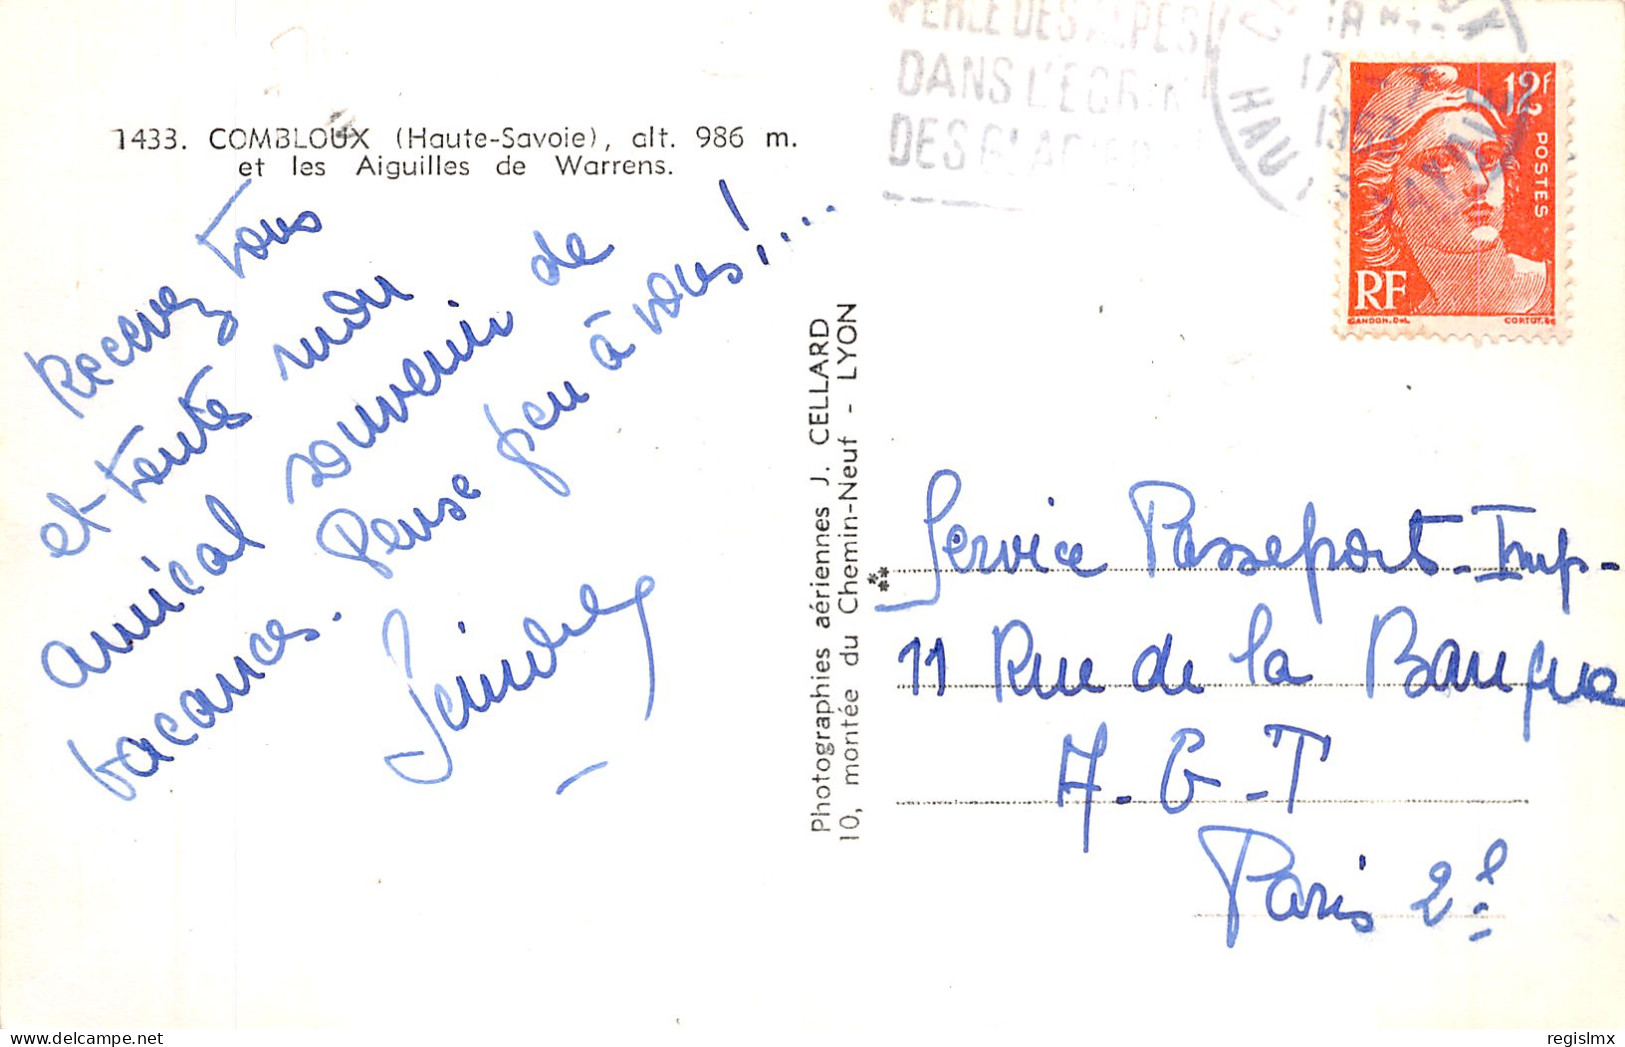 1433. COMBLOUX (Haute-Savoie), alt. 986 m.
et les Aiguilles de Warrens.
Recevez tous
et toutes mon
amical souvenir de
vacances. Pense peu à vous!...
Photographies aériennes J. CELLARD
10, montée du Chemin-Neuf - LYON
PERLE DES ALPES
DANS L'ECRIN
DES GLACIERS
17 - 7
HAU
12F
POSTES
RF
GANDON.Del.
CORTOT.Sc
Service Passeport-Imp-
11 Rue de la Banque
A-G-T
Paris 2e
regislmx